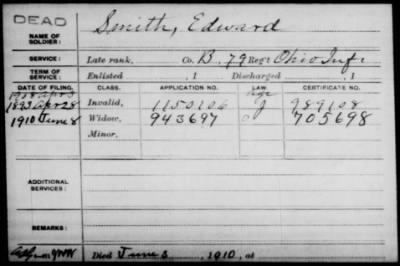 DEAD
NAME OF SOLDIER: Smith, Edward
SERVICE: Late rank, Co. B. 79 Reg't Ohio Inf.
TERM OF SERVICE: Enlisted , 1 Discharged , 1
DATE OF FILING. CLASS. APPLICATION NO. LAW. CERTIFICATE NO.
1893 Apr 28 Invalid, 1150106 J 989108
1910 June 8 Widow, 943697 705698
Minor,
ADDITIONAL SERVICES:
REMARKS:
Died June 3, 1910, at